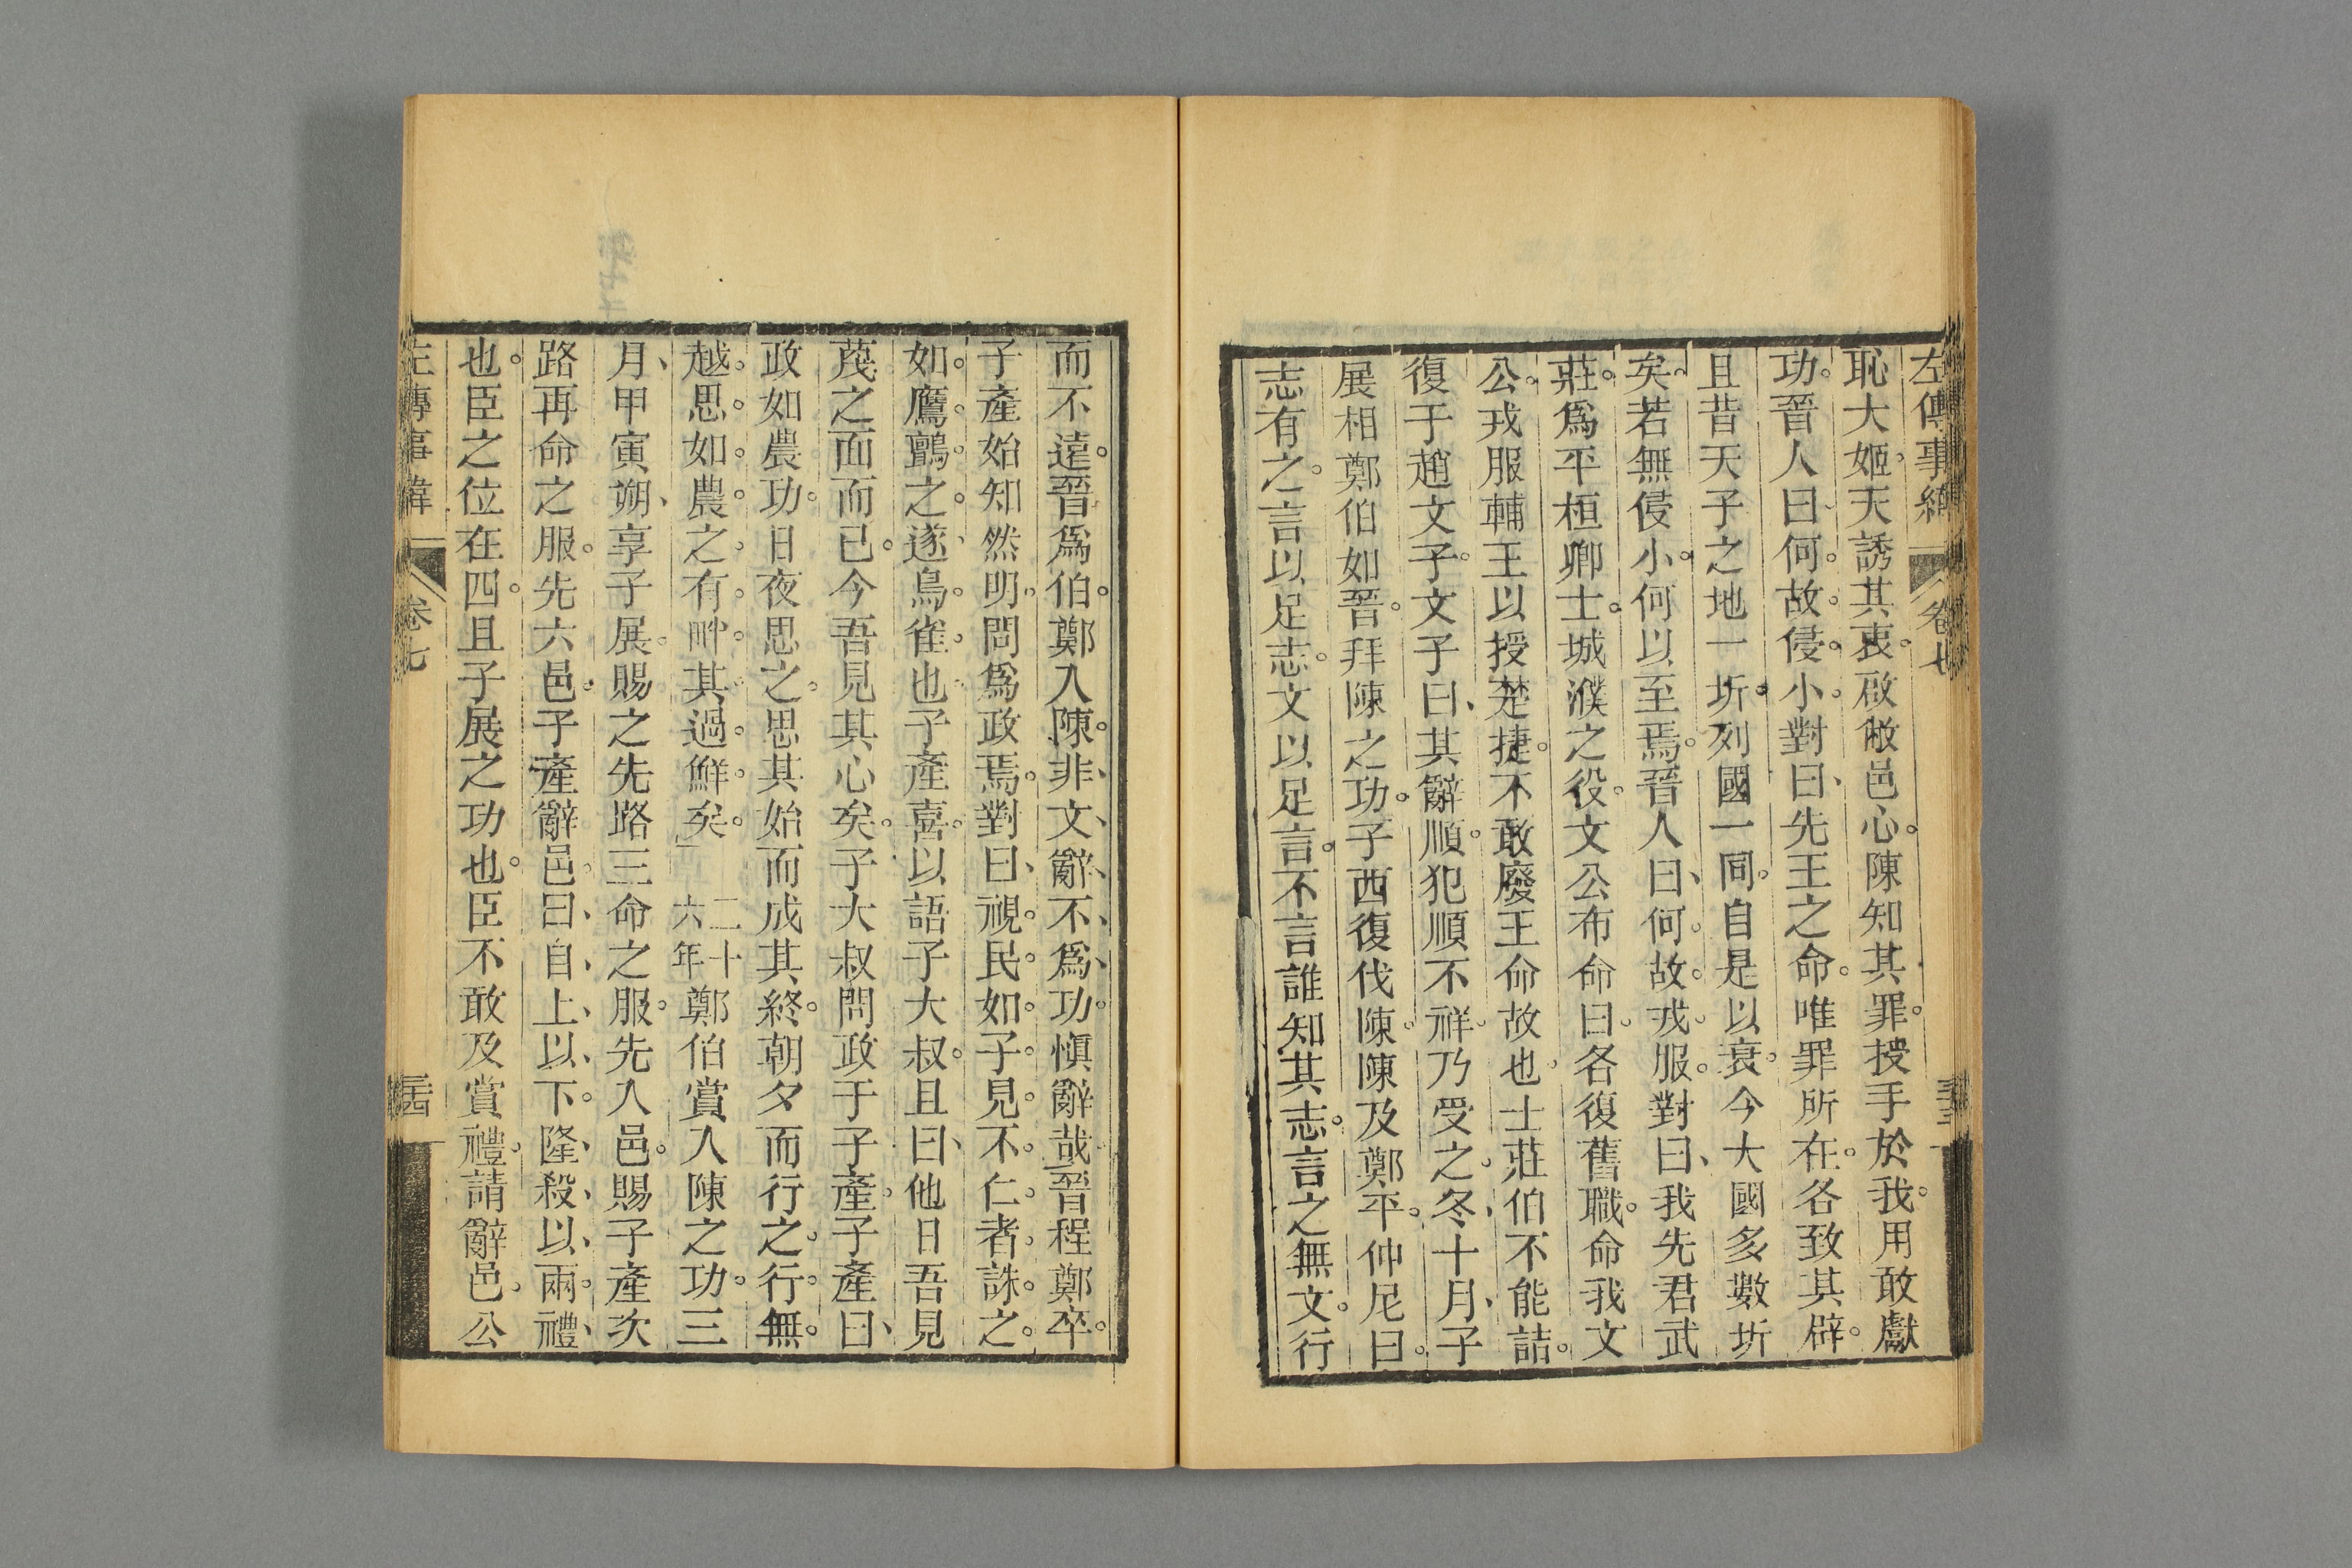 左傳事緯 卷七
恥大姬天誘其衷啟敝邑心陳知其罪授手於我用敢獻
功晉人曰何故侵小對曰先王之命唯罪所在各致其辟
且昔天子之地一圻列國一同自是以衰今大國多數圻
矣若無侵小何以至焉晉人曰何故戎服對曰我先君武
莊爲平桓卿士城濮之役文公布命曰各復舊職命我文
公戎服輔王以授楚捷不敢廢王命故也士莊伯不能詰
復于趙文子文子曰其辭順犯順不祥乃受之冬十月子
展相鄭伯如晉拜陳之功子西復伐陳陳及鄭平仲尼曰
志有之言以足志文以足言不言誰知其志言之無文行
而不遠晉爲伯鄭入陳非文辭不爲功愼辭哉晉程鄭卒
子產始知然明問爲政焉對曰視民如子見不仁者誅之
如鷹鸇之逐鳥雀也子產喜以語子大叔且曰他日吾見
蔑之面而已今吾見其心矣子大叔問政于子產子產曰
政如農功日夜思之思其始而成其終朝夕而行之行無
越思如農之有畔其過鮮矣 二十六年 鄭伯賞入陳之功三
月甲寅朔享子展賜之先路三命之服先入邑賜子產次
路再命之服先六邑子產辭邑曰自上以下隆殺以兩禮
也臣之位在四且子展之功也臣不敢及賞禮請辭邑公
左傳事緯 卷七